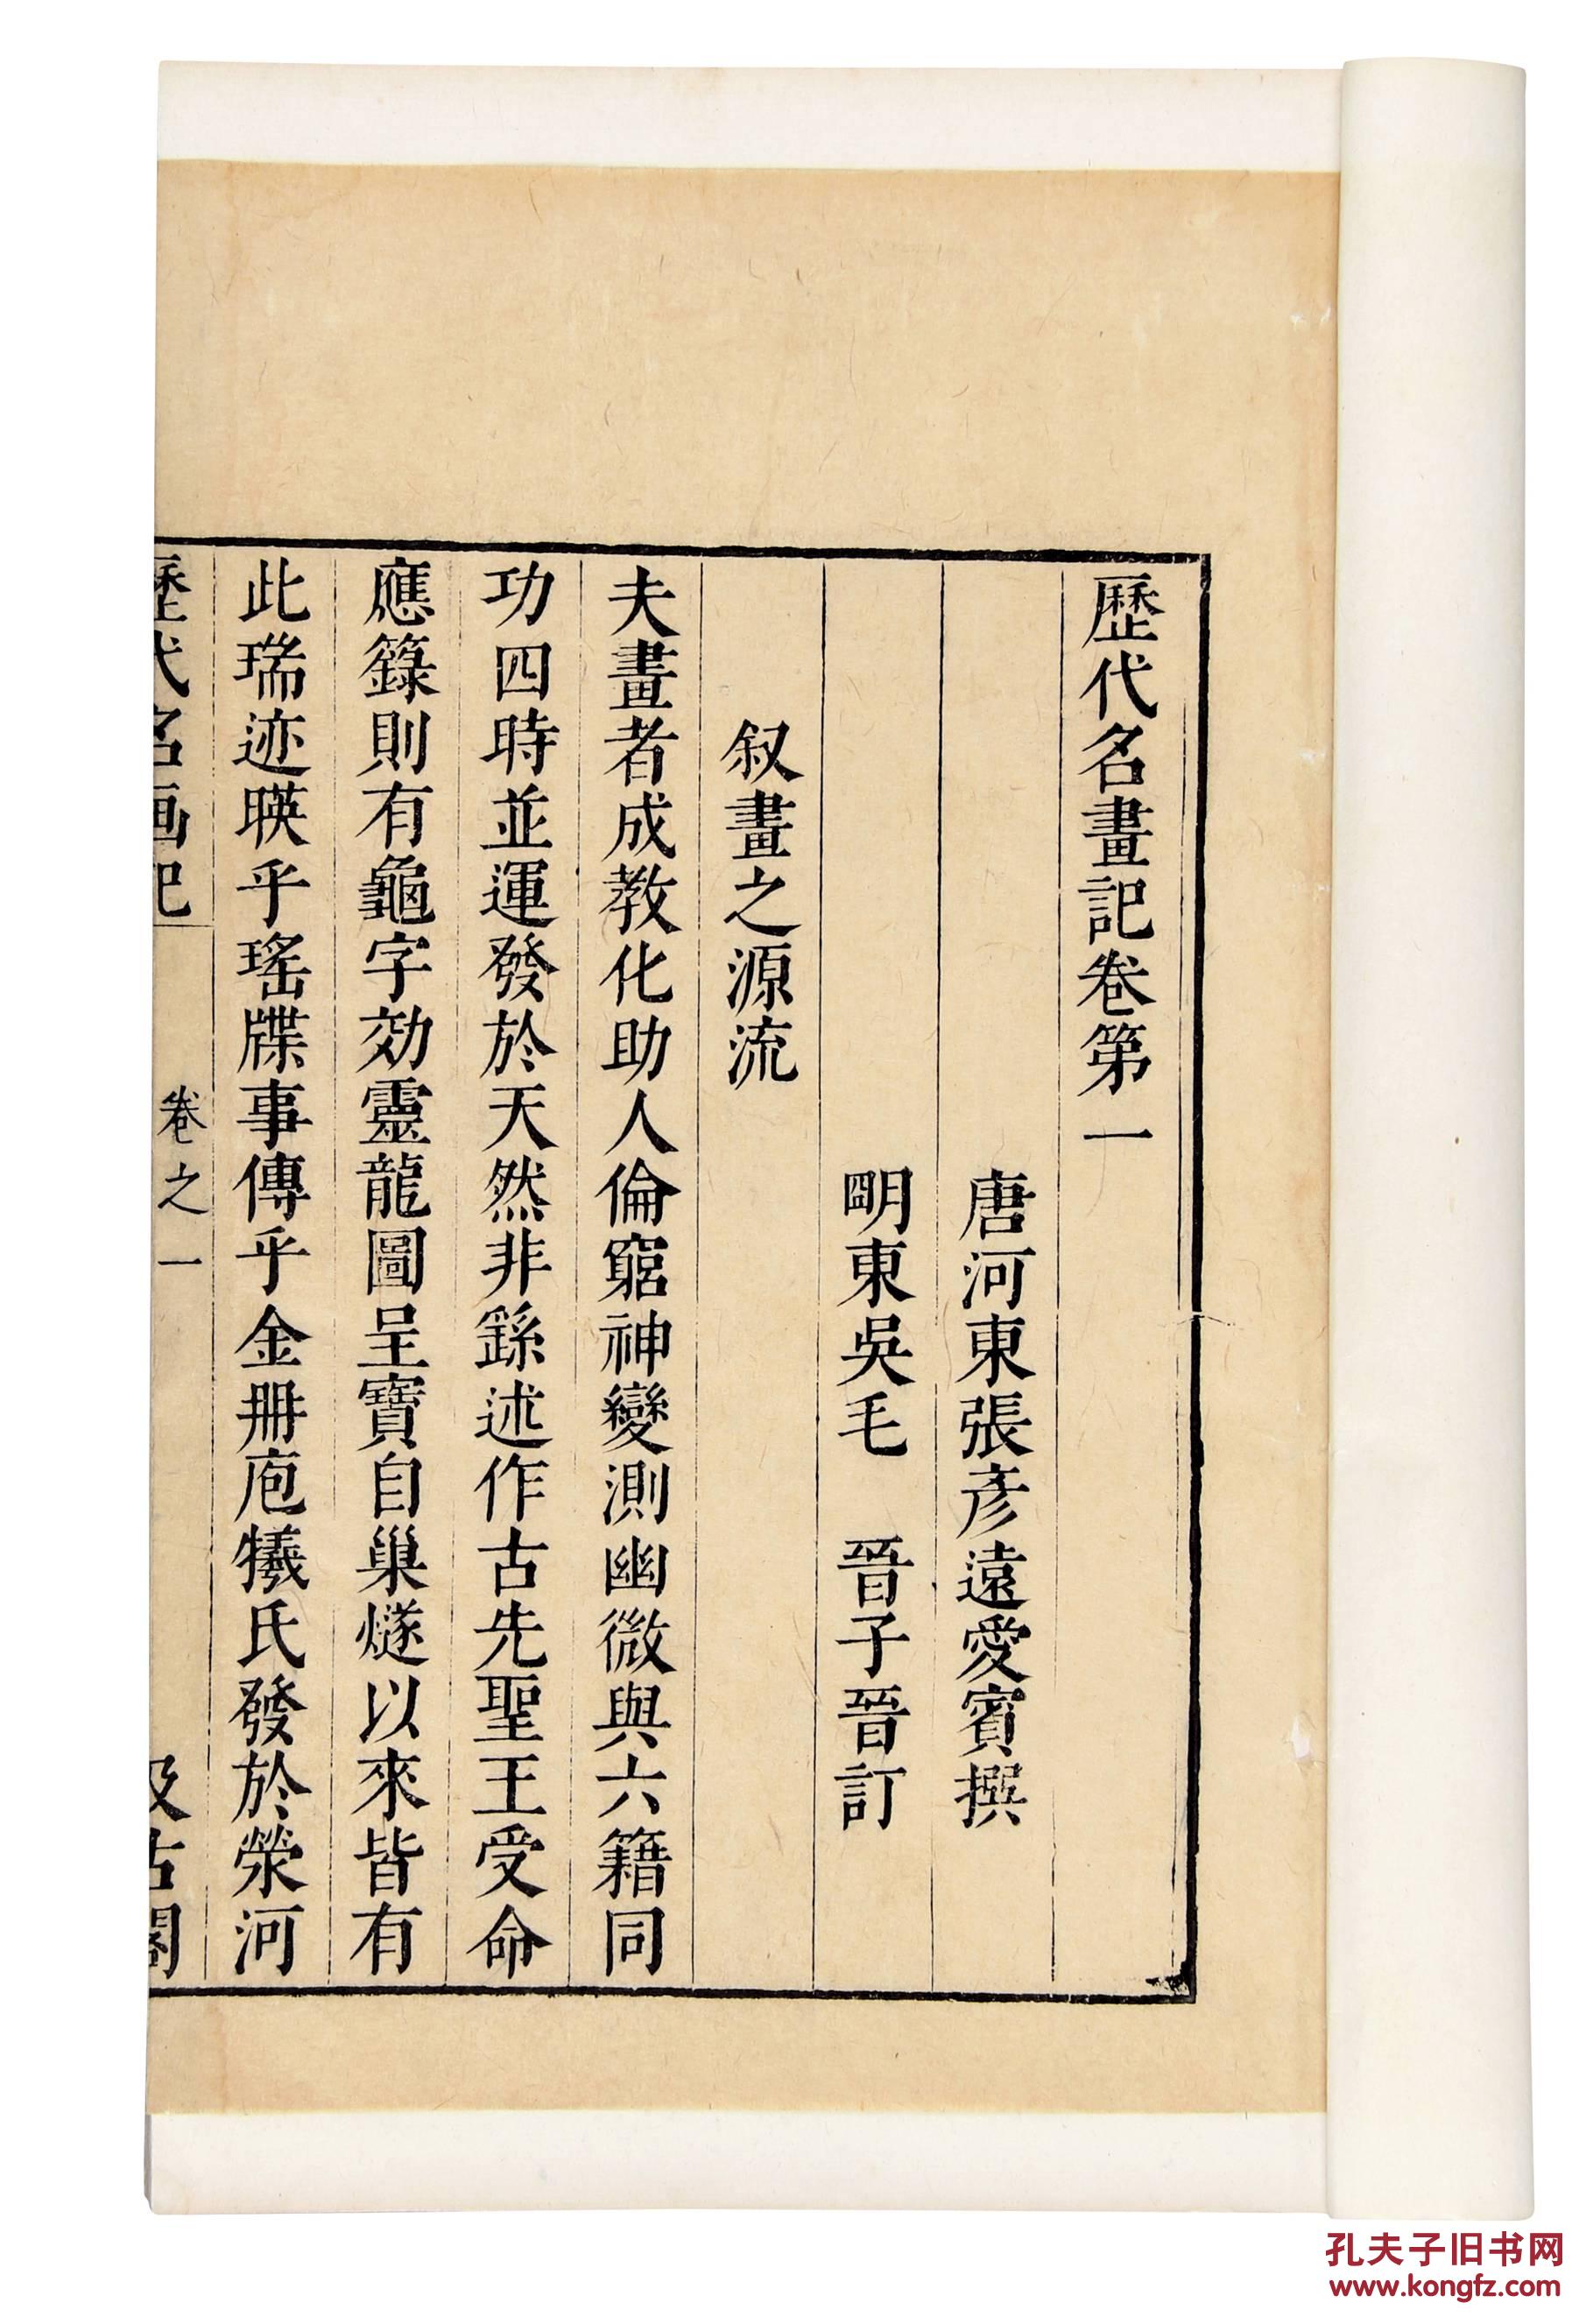 歷代名畫記卷第一
唐河東張彥遠愛賓撰
明東吳毛　晉子晉訂
叙畫之源流
夫畫者成教化助人倫窮神變測幽微與六籍同
功四時並運發於天然非繇述作古先聖王受命
應籙則有龜字効靈龍圖呈寶自巢燧以來皆有
此瑞迹暎乎瑤牒事傳乎金冊庖犧氏發於滎河
歷代名畫記
卷之一
汲古閣
孔夫子旧书网
www.kongfz.com